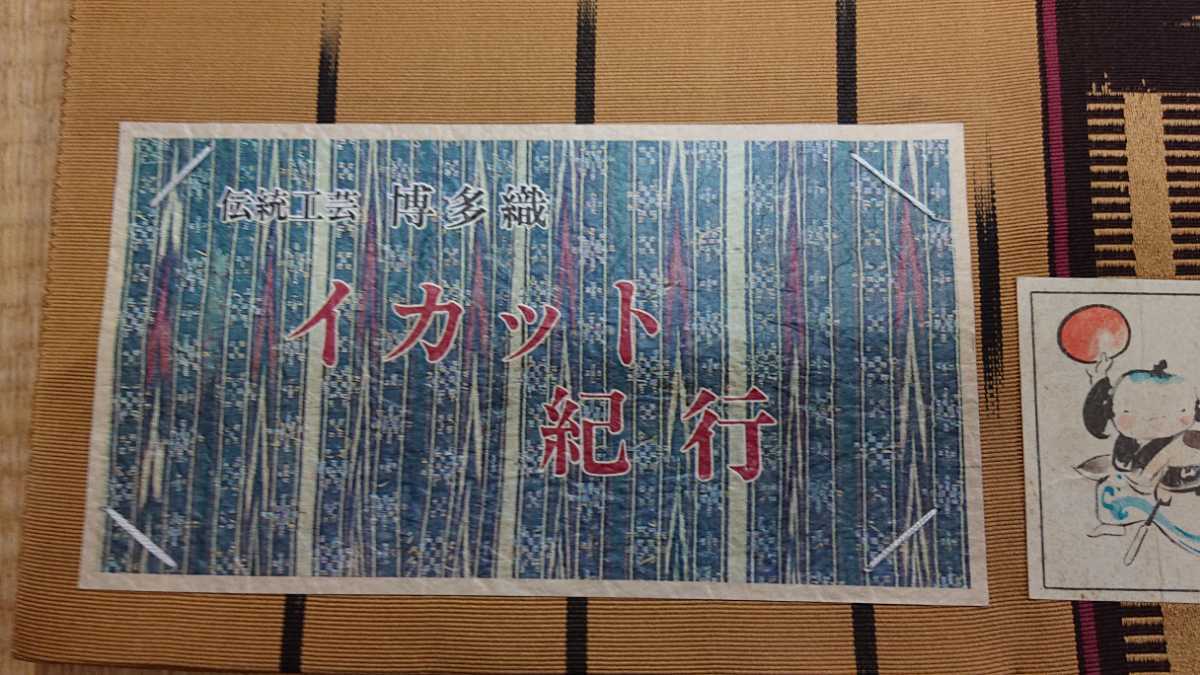 伝統工芸 博多織
イカット
紀行